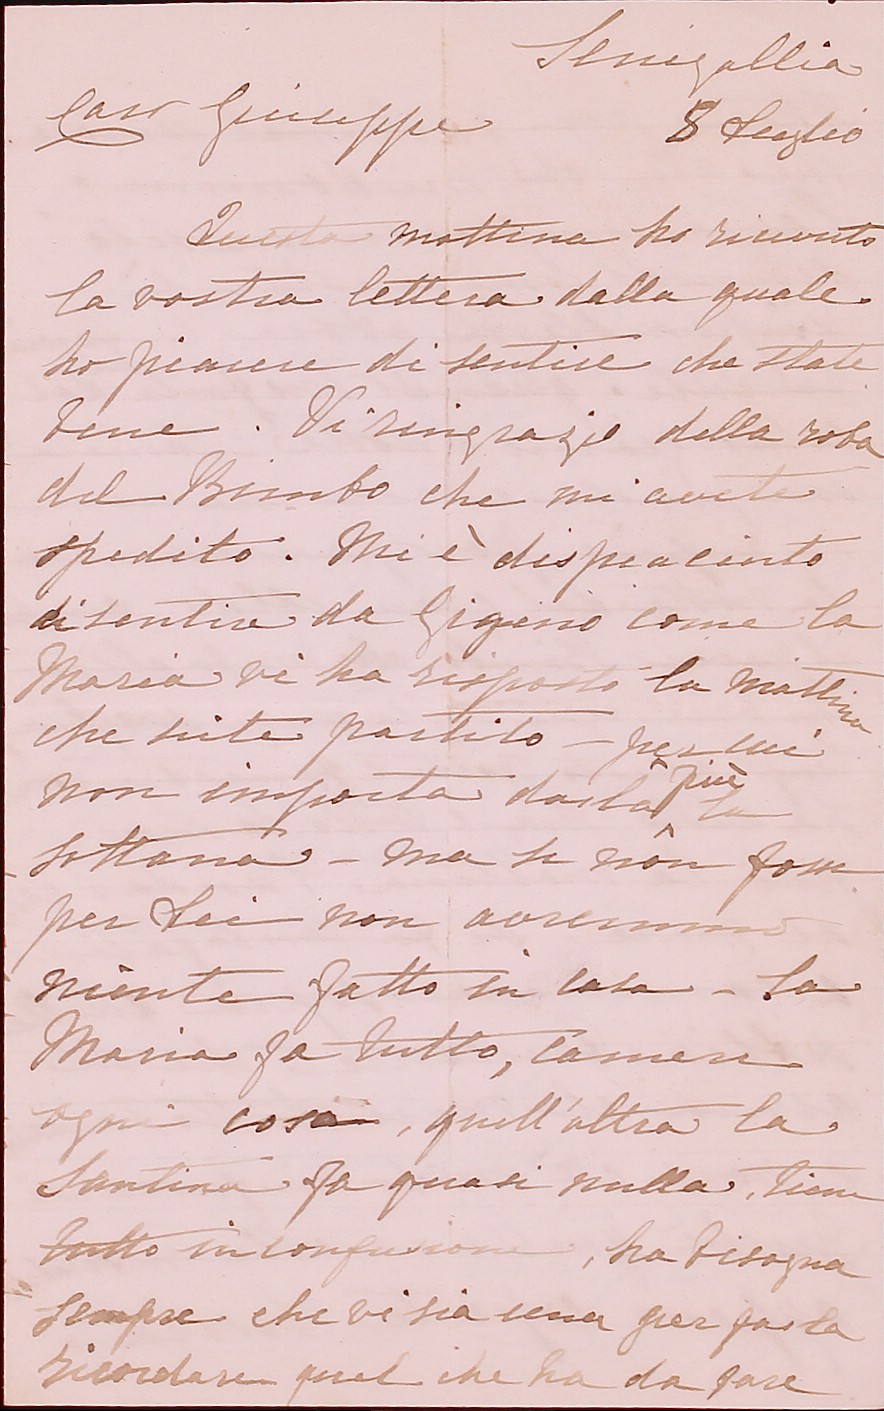 Senigallia
Caro Giuseppe 8 Luglio
Questa mattina ho ricevuto
la vostra lettera dalla quale
ho piacere di sentire che state
bene. Vi ringrazio della roba
del Bimbo che mi avete
spedito. Mi è dispiaciuto
di sentire da Gigino come la
Maria vi ha risposto la mattina
che siete partito – per cui
non importa darla più la
sottana – ma se non fosse
per Lei non avremmo
niente fatto in casa – La
Maria fa tutto, camere
ogni cosa, quell'altra la
Santina fa quasi nulla, tiene
tutto in confusione, ha bisogna
sempre che vi sia una per farla
ricordare quel che ha da fare